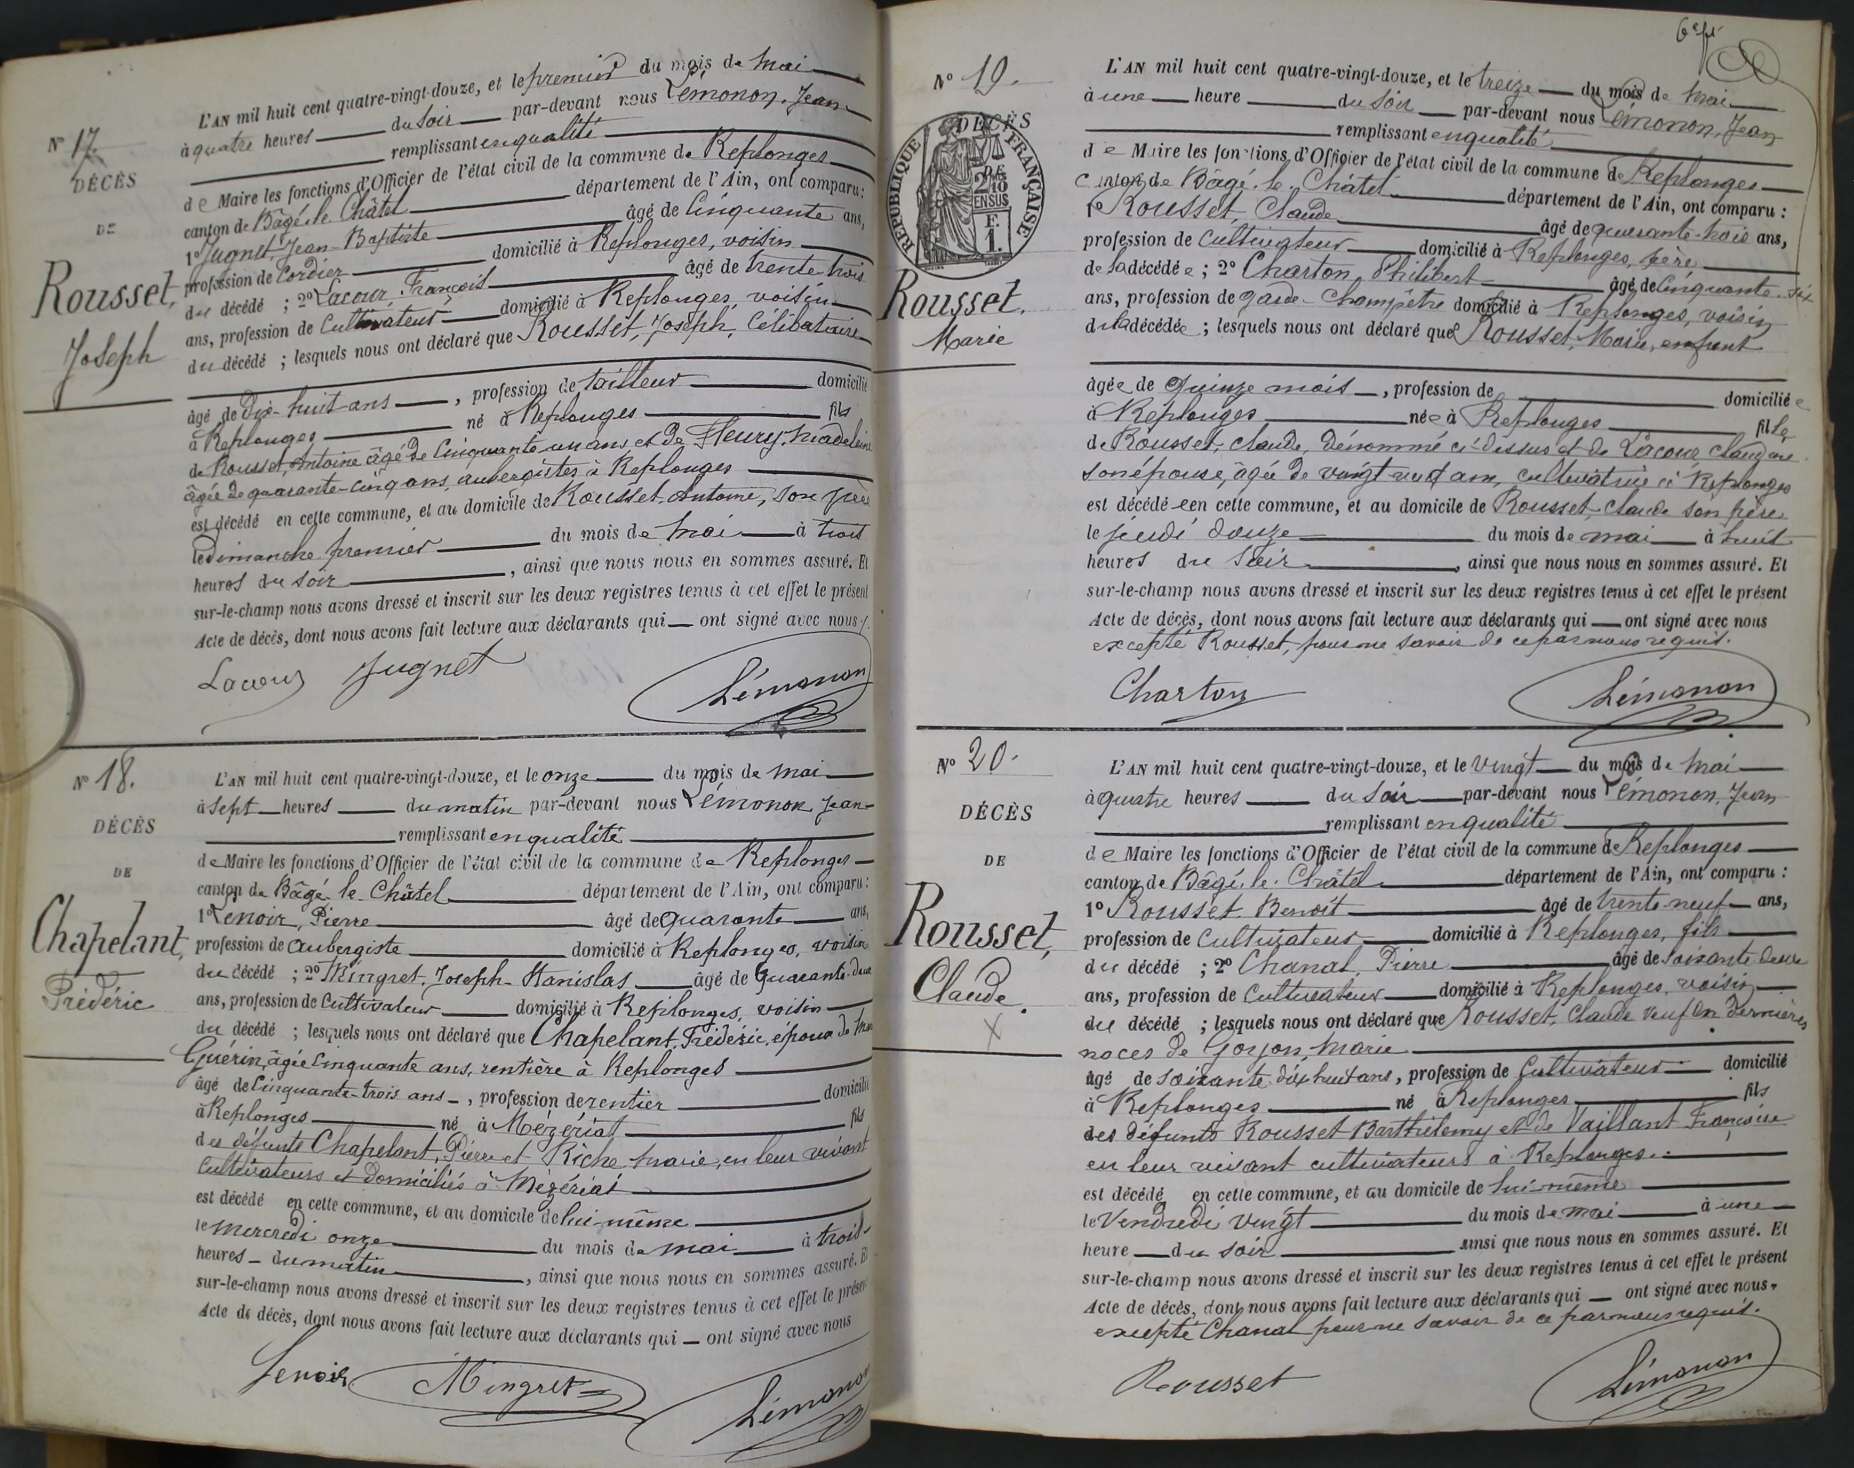 N° 17.
DÉCÈS
DE
Rousset,
Joseph
L'AN mil huit cent quatre-vingt-douze, et le premier du mois de Mai
à quatre heures du soir par-devant nous Lémonon, Jean
remplissant en qualité
de Maire les fonctions d'Officier de l'état civil de la commune de Replonges
canton de Bâgé-le-Châtel département de l'Ain, ont comparu :
1° Jugnet, Jean-Baptiste âgé de Cinquante ans,
profession de Cordier domicilié à Replonges, voisin
du décédé ; 2° Lacour, François âgé de trente trois
ans, profession de Cultivateur domicilié à Replonges, voisin
du décédé ; lesquels nous ont déclaré que Rousset, Joseph, Célibataire
âgé de Dix-huit ans, profession de tailleur domicilié
à Replonges né à Replonges fils
de Rousset, Antoine âgé de Cinquante un ans et de Fleury, Madeleine
âgée de quarante-cinq ans, aubergistes à Replonges
est décédé en cette commune, et au domicile de Rousset Antoine, son père
le Dimanche premier du mois de Mai à trois
heures du soir, ainsi que nous nous en sommes assuré. Et
sur-le-champ nous avons dressé et inscrit sur les deux registres tenus à cet effet le présent
Acte de décès, dont nous avons fait lecture aux déclarants qui — ont signé avec nous.
Lacour Jugnet Lémonon
N° 18.
DÉCÈS
DE
Chapelant,
Frédéric
L'AN mil huit cent quatre-vingt-douze, et le onze du mois de mai
à sept heures du matin par-devant nous Lémonon Jean
remplissant en qualité
de Maire les fonctions d'Officier de l'état civil de la commune de Replonges
canton de Bâgé-le-Châtel département de l'Ain, ont comparu :
1° Lenoir, Pierre âgé de quarante ans,
profession de aubergiste domicilié à Replonges, voisin
du décédé ; 2° Mingret, Joseph-Stanislas âgé de quarante-deux
ans, profession de Cultivateur domicilié à Replonges, voisin
du décédé ; lesquels nous ont déclaré que Chapelant, Frédéric, époux de
Guérin, âgée Cinquante ans, rentière à Replonges
âgé de Cinquante-trois ans, profession de rentier domicilié
à Replonges né à Mézériat fils
des défunts Chapelant, Pierre et Riche, Marie, en leur vivant
Cultivateurs et domiciliés à Mézériat
est décédé en cette commune, et au domicile de lui-même
le Mercredi onze du mois de mai à trois
heures du matin, ainsi que nous nous en sommes assuré. Et
sur-le-champ nous avons dressé et inscrit sur les deux registres tenus à cet effet le présent
Acte de décès, dont nous avons fait lecture aux déclarants qui — ont signé avec nous
Lenoir Mingret Lémonon
N° 19.
DÉCÈS
RÉPUBLIQUE FRANÇAISE
2/10
EN SUS
F.
1.
DE
Rousset.
Marie
L'AN mil huit cent quatre-vingt-douze, et le treize du mois de Mai
à une heure du soir par-devant nous Lémonon, Jean
remplissant en qualité
de Maire les fonctions d'Officier de l'état civil de la commune de Replonges
canton de Bâgé-le-Châtel département de l'Ain, ont comparu :
1° Rousset, Claude âgé de quarante-trois ans,
profession de Cultivateur domicilié à Replonges, père
de la décédée ; 2° Charton, Philibert âgé de Cinquante-six
ans, profession de garde-Champêtre domicilié à Replonges, voisin
de la décédée ; lesquels nous ont déclaré que Rousset, Marie, enfant
âgée de quinze mois, profession de domiciliée
à Replonges née à Replonges fille
de Rousset, Claude, dénommé ci-dessus et de Lacour
son épouse, âgée de ans, cultivatrice à Replonges
est décédée en cette commune, et au domicile de Rousset Claude son père
le jeudi douze du mois de mai à huit
heures du Soir, ainsi que nous nous en sommes assuré. Et
sur-le-champ nous avons dressé et inscrit sur les deux registres tenus à cet effet le présent
Acte de décès, dont nous avons fait lecture aux déclarants qui — ont signé avec nous
excepté Rousset, pour ne savoir de ce par nous requis.
Charton Lémonon
N° 20.
DÉCÈS
DE
Rousset,
Claude.
X
L'AN mil huit cent quatre-vingt-douze, et le vingt du mois de Mai
à quatre heures du Soir par-devant nous Lémonon, Jean
remplissant en qualité
de Maire les fonctions d'Officier de l'état civil de la commune de Replonges
canton de Bâgé-le-Châtel département de l'Ain, ont comparu :
1° Rousset, Benoît âgé de trente-neuf ans,
profession de Cultivateur domicilié à Replonges, fils
du décédé ; 2° Chanal, Pierre âgé de soixante-deux
ans, profession de Cultivateur domicilié à Replonges, voisin
du décédé ; lesquels nous ont déclaré que Rousset, Claude veuf en dernières
noces de Goyon, Marie
âgé de soixante-dix-huit ans, profession de Cultivateur domicilié
à Replonges né à Replonges fils
des défunts Rousset Barthélemy et de Vaillant Françoise
en leur vivant cultivateurs à Replonges.
est décédé en cette commune, et au domicile de lui-même
le Vendredi vingt du mois de mai à une
heure du soir ainsi que nous nous en sommes assuré. Et
sur-le-champ nous avons dressé et inscrit sur les deux registres tenus à cet effet le présent
Acte de décès, dont nous avons fait lecture aux déclarants qui — ont signé avec nous.
excepté Chanal pour ne savoir de ce par nous requis.
Rousset Lémonon